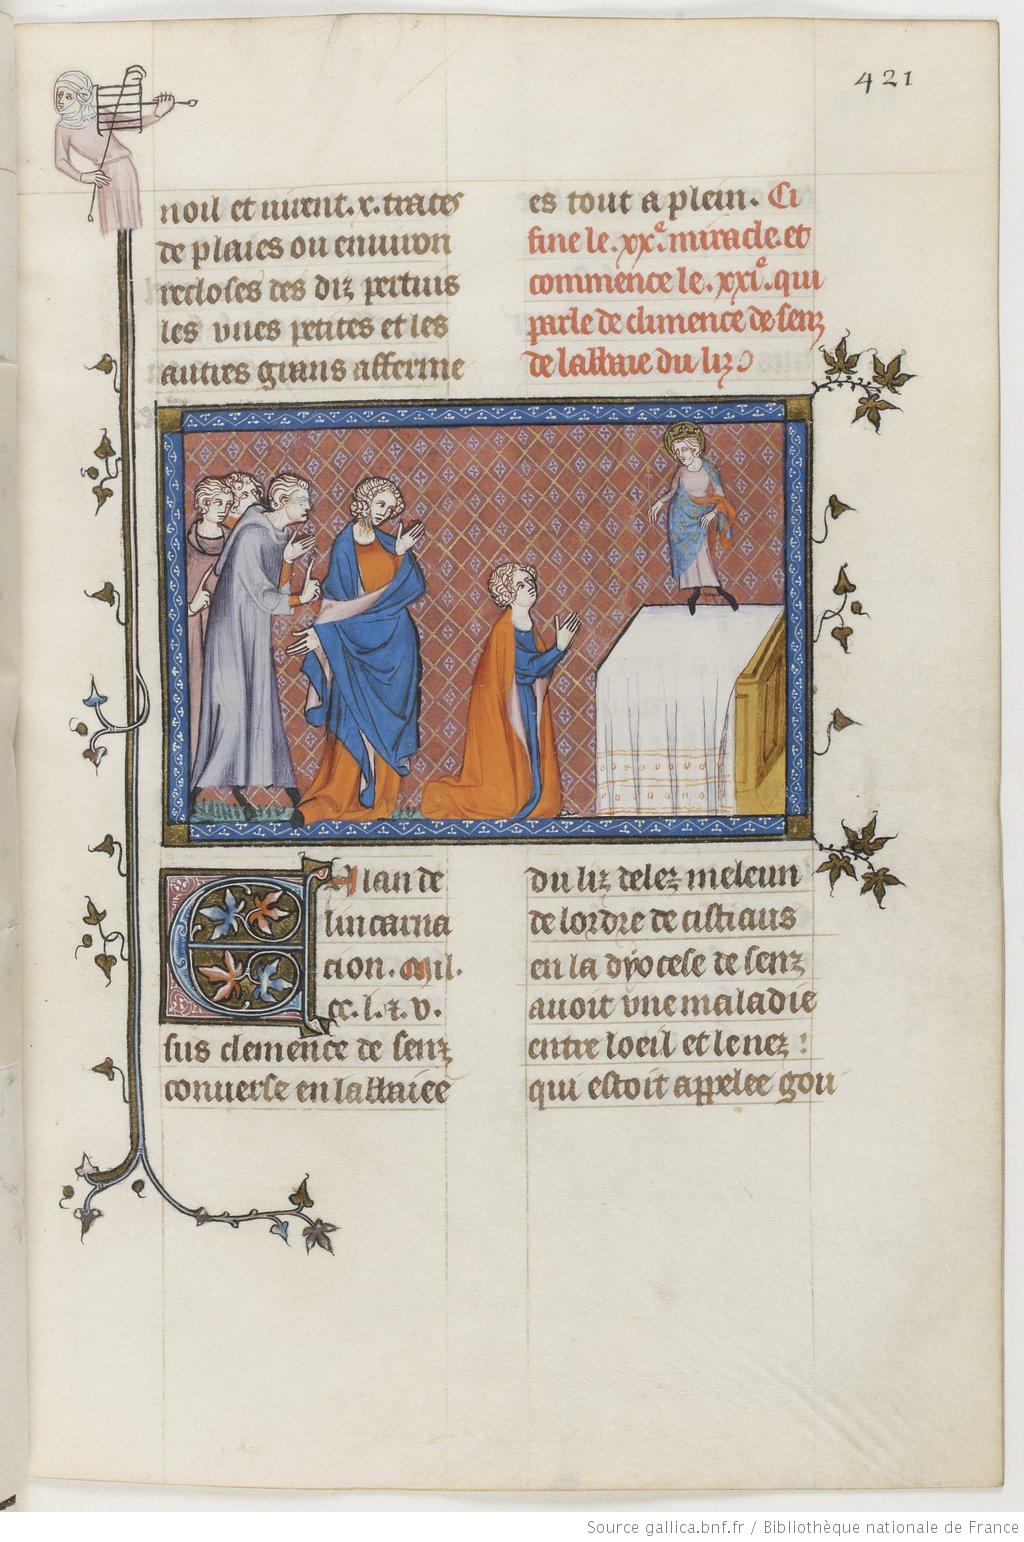 421
noil et uirent .x. traces
de plaies ou enuiron
recloses des diz pertuis
les vnes petites et les
autres grans afferme
es tout a plein. Ci
fine le .xxe. miracle. et
commence le .xxie. qui
parle de climence de senz
de labbaie du liz
En lan de
lincarna
cion. mil.
cc. l. z. v.
sus clemence de senz
conuerse en labbaiee
du liz delez meleun
de lordre de cistiaus
en la dyocese de senz
auoit vne maladie
entre loeil et le nez :
qui estoit appelee gou
Source gallica.bnf.fr / Bibliothèque nationale de France